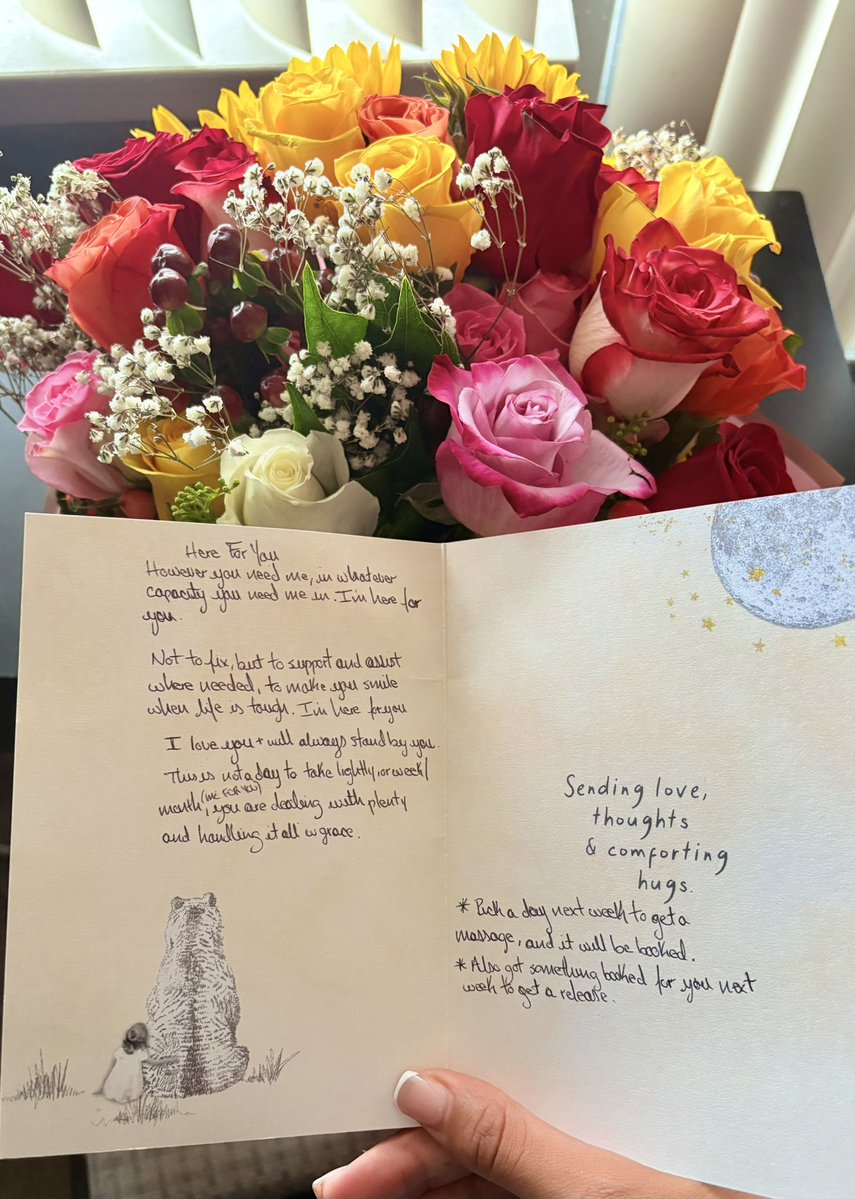 Here For You
However you need me, in whatever
capacity you need me in. I'm here for
you.
Not to fix, but to support and assist
where needed, to make you smile
when life is tough. I'm here for you
I love you + will always stand by you.
This is not a day to take lightly, or week/
month, (WE FOR YOU) you are dealing with plenty
and handling it all w grace.
Sending love,
thoughts
& comforting
hugs.
* Pick a day next week to get a
massage, and it will be booked.
* Also got something booked for you next
week to get a release.